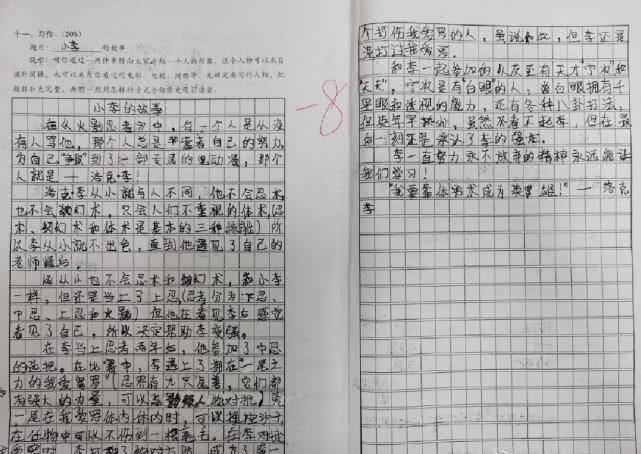 十一、习作。(20分)
题目:小李的故事
提示:请你通过一两件事情向大家介绍一个人物形象,这个人物可以来自
课外阅读,也可以来自你看过的电影、电视、网络等。先确定要写的人物,把
题目补充完整,再想一想用怎样的方式介绍能更吸引读者。
小李的故事
在《火影忍者》中,有一个人是从没
有人骂他,那个人总是靠着自己的努力,
为自己争取到了一部专属的电动漫,那个
人就是——洛克李!
洛克李从小就与人不同,他不会忍术,
也不会幻术,只会人们不重视的体术(忍
术、幻术和体术是基本的三种)所
以李从小就不出色,直到他遇见了自己的
老师
从小也不会忍术和幻术,和小李
一样,但还是当上了上忍(忍者分为:下忍、
中忍、上忍和火影)但他在看见李后感觉
看见了自己,所以决定帮助李变强。
在李当上忍者两年后,他参加了中忍
的选拔。在比赛中,李遇上了拥有一尾之
力的我爱罗,忍界有九只尾兽,它们都
有强大的力量,可以与人物对抗,
一尾在我爱罗体内体内时,可以操控沙子,
在任物中可以不伤到一根毫毛。在李对战
-8
个打伤我爱罗的人,虽说如此,但李还是
没打过我爱罗。
和李一起参加的队友还有天才宁次和
天天,宁次是有白眼的人,白眼拥有千
里眼和透视的能力,还有各种八卦打法,
但是年予挑分,虽然不看不起李,但在最
后一刻还是承认了李的强大。
李一直努力永不放弃的精神永远能让
我们学习!
“我要靠体术成为英雄!”——洛克
李